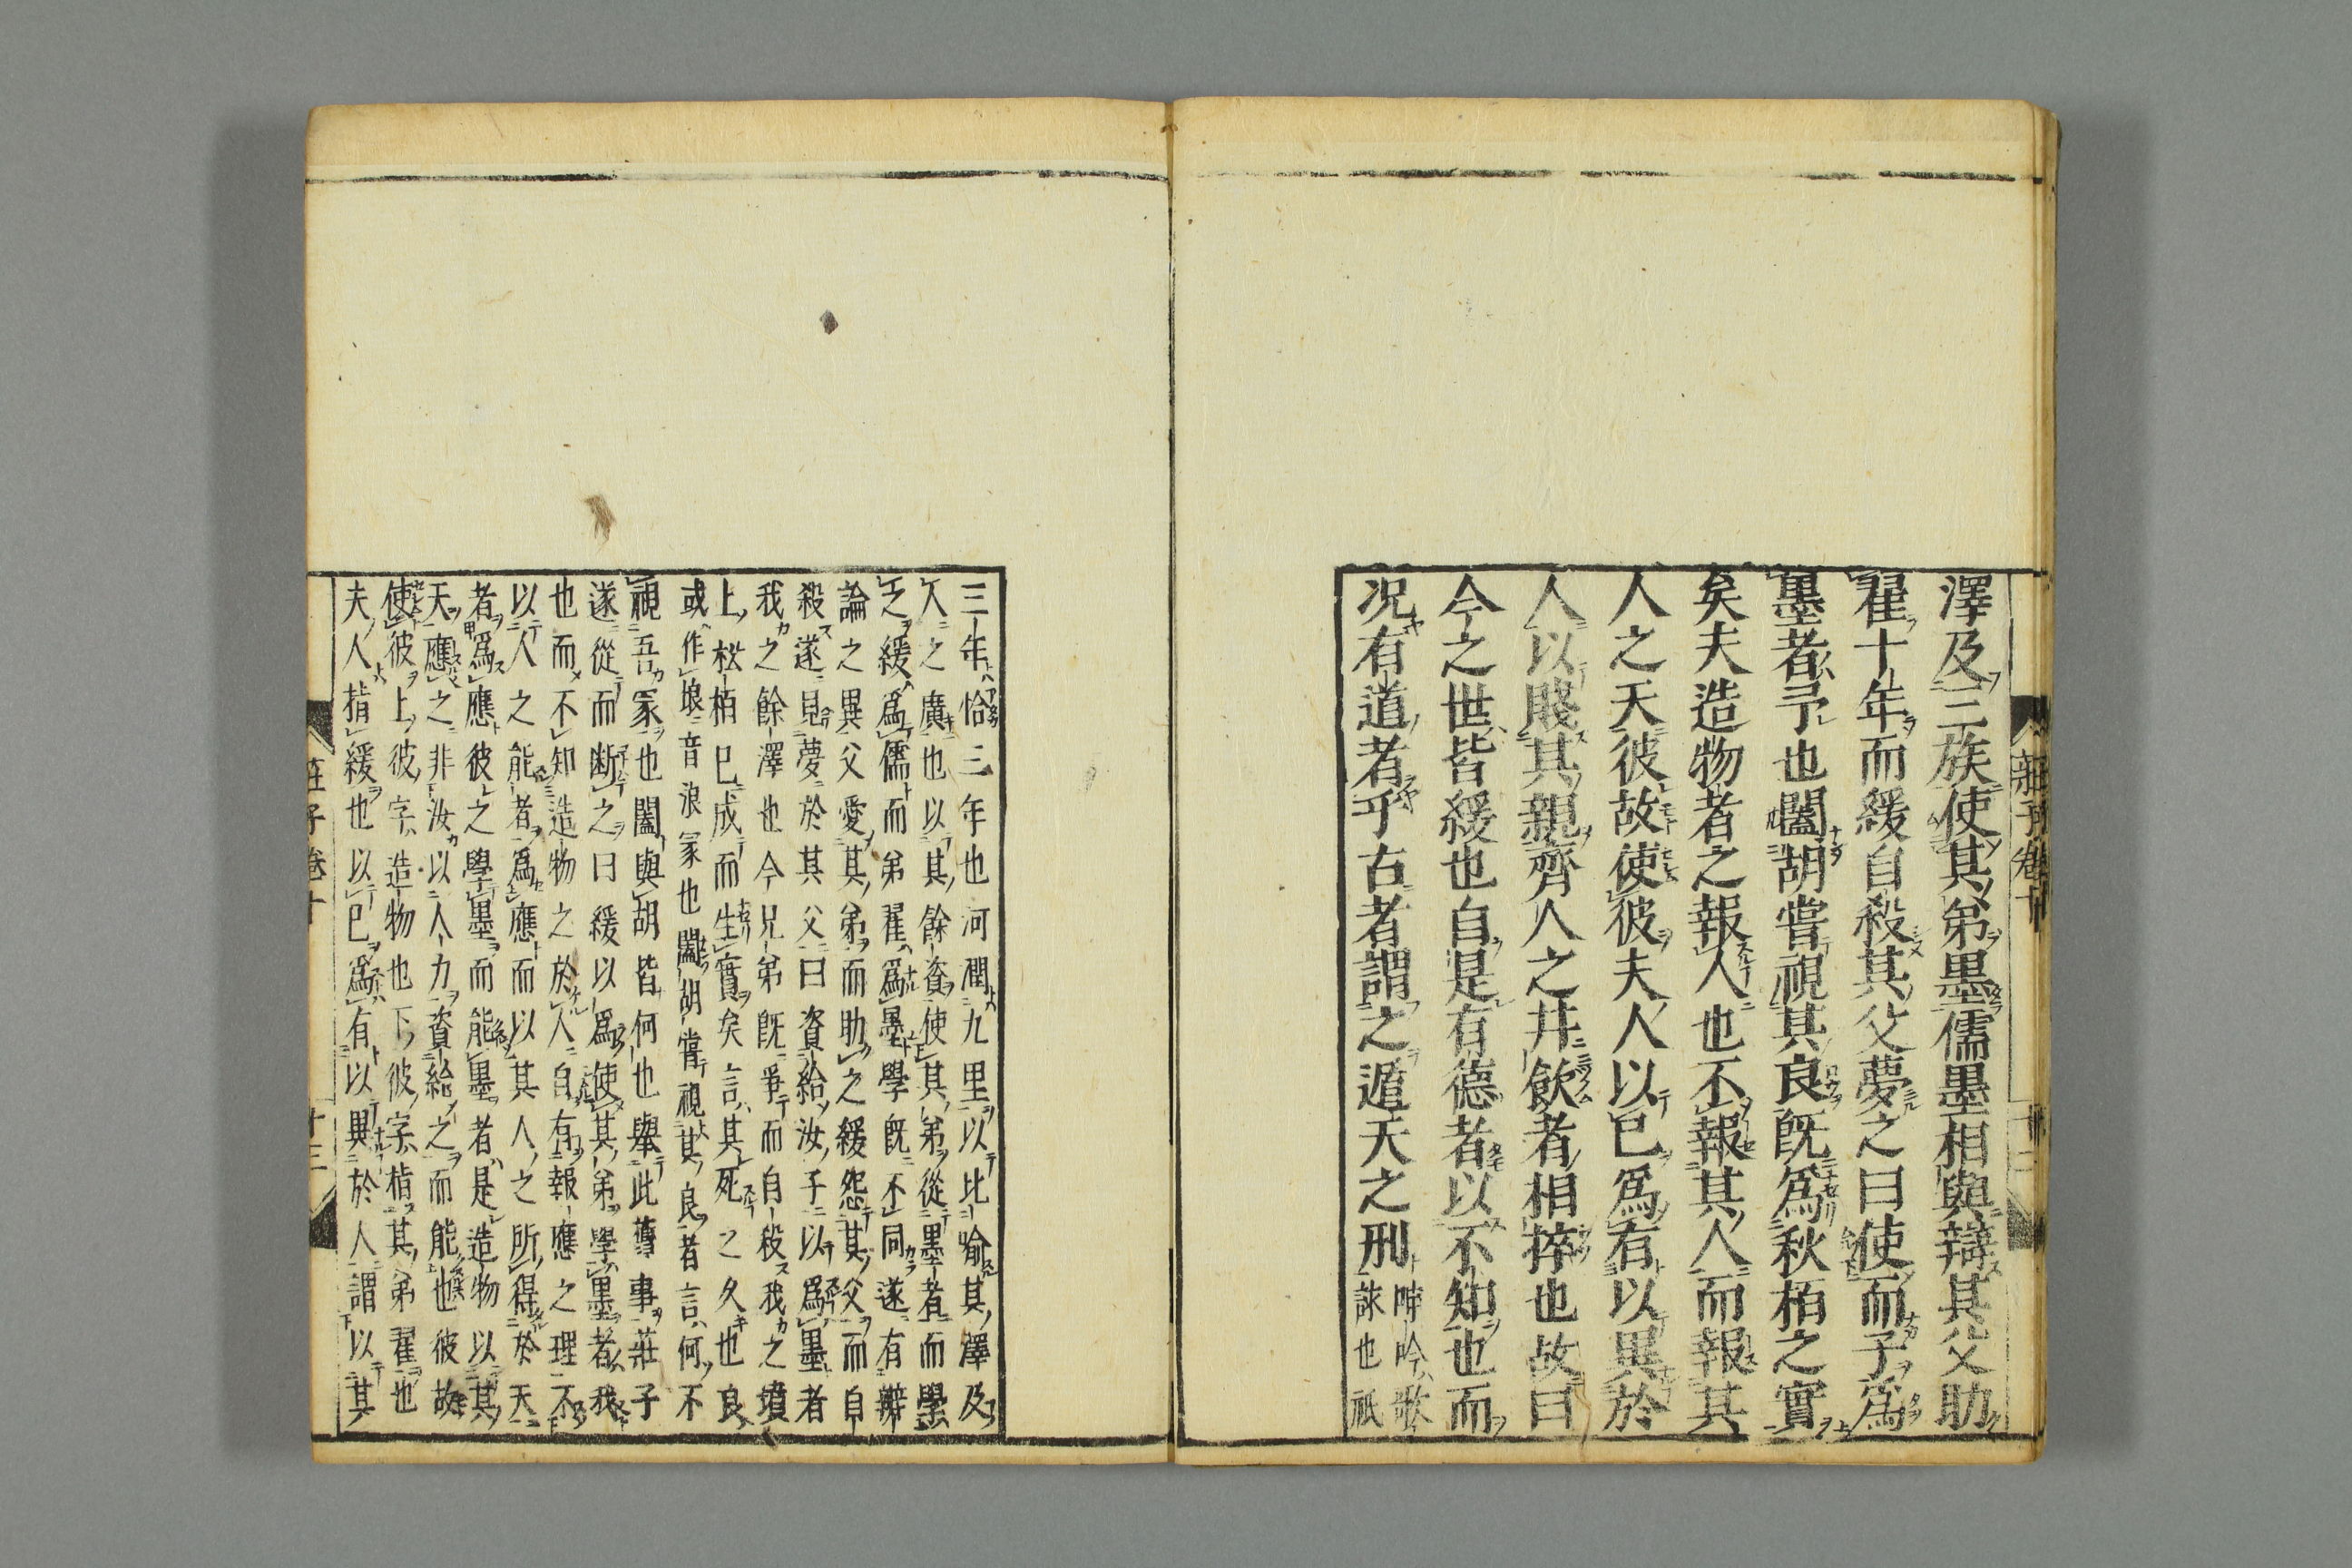 澤及三族使其弟墨儒墨相與辯其父助
翟十年而緩自殺其父夢之曰使而子為
墨者予也闔胡嘗視其良既為秋栢之實
矣夫造物者之報人也不報其人而報其
人之天彼故使彼夫人以己為有以異於
人以賤其親齊人之井飲者相捽也故曰
今之世皆緩也自是有德者以不知也而
况有道者乎古者謂之遁天之刑
時吟歌
誄也祇
三年恰三年也河潤九里以比喻其澤及
人之廣也以其餘資使其弟從墨者而學
之緩為儒而弟翟為墨學既不同遂有辯
論之異父愛其弟而助之緩怨其父而自
殺遂見夢於其父曰資給汝子以為墨者
我之餘澤也今兄弟既爭而自殺我之墳
上松栢已成而生實矣言其死之久也良
或作埌音浪冢也闔胡嘗視其良者言何不
視吾冢也闔與胡皆何也舉此舊事莊子
遂從而斷之曰緩以為使其弟學墨者我
也而不知造物之於人自有報應之理不
以人之能者為應而以其人之所得於天
者為應彼之學墨而能墨者是造物以其
天應之非汝以人力資給之而能也彼故
使彼上彼字造物也下彼字指其弟翟也
夫人指緩也以已為有以異於人謂以其
莊子卷十
十三